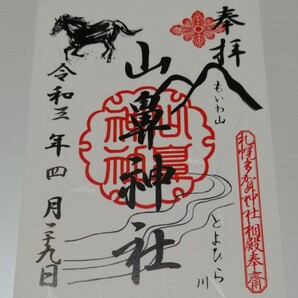 奉拝
もいわ山
山鼻神社
とよひら川
令和三年四月二十九日
札幌多賀神社相殿奉斎